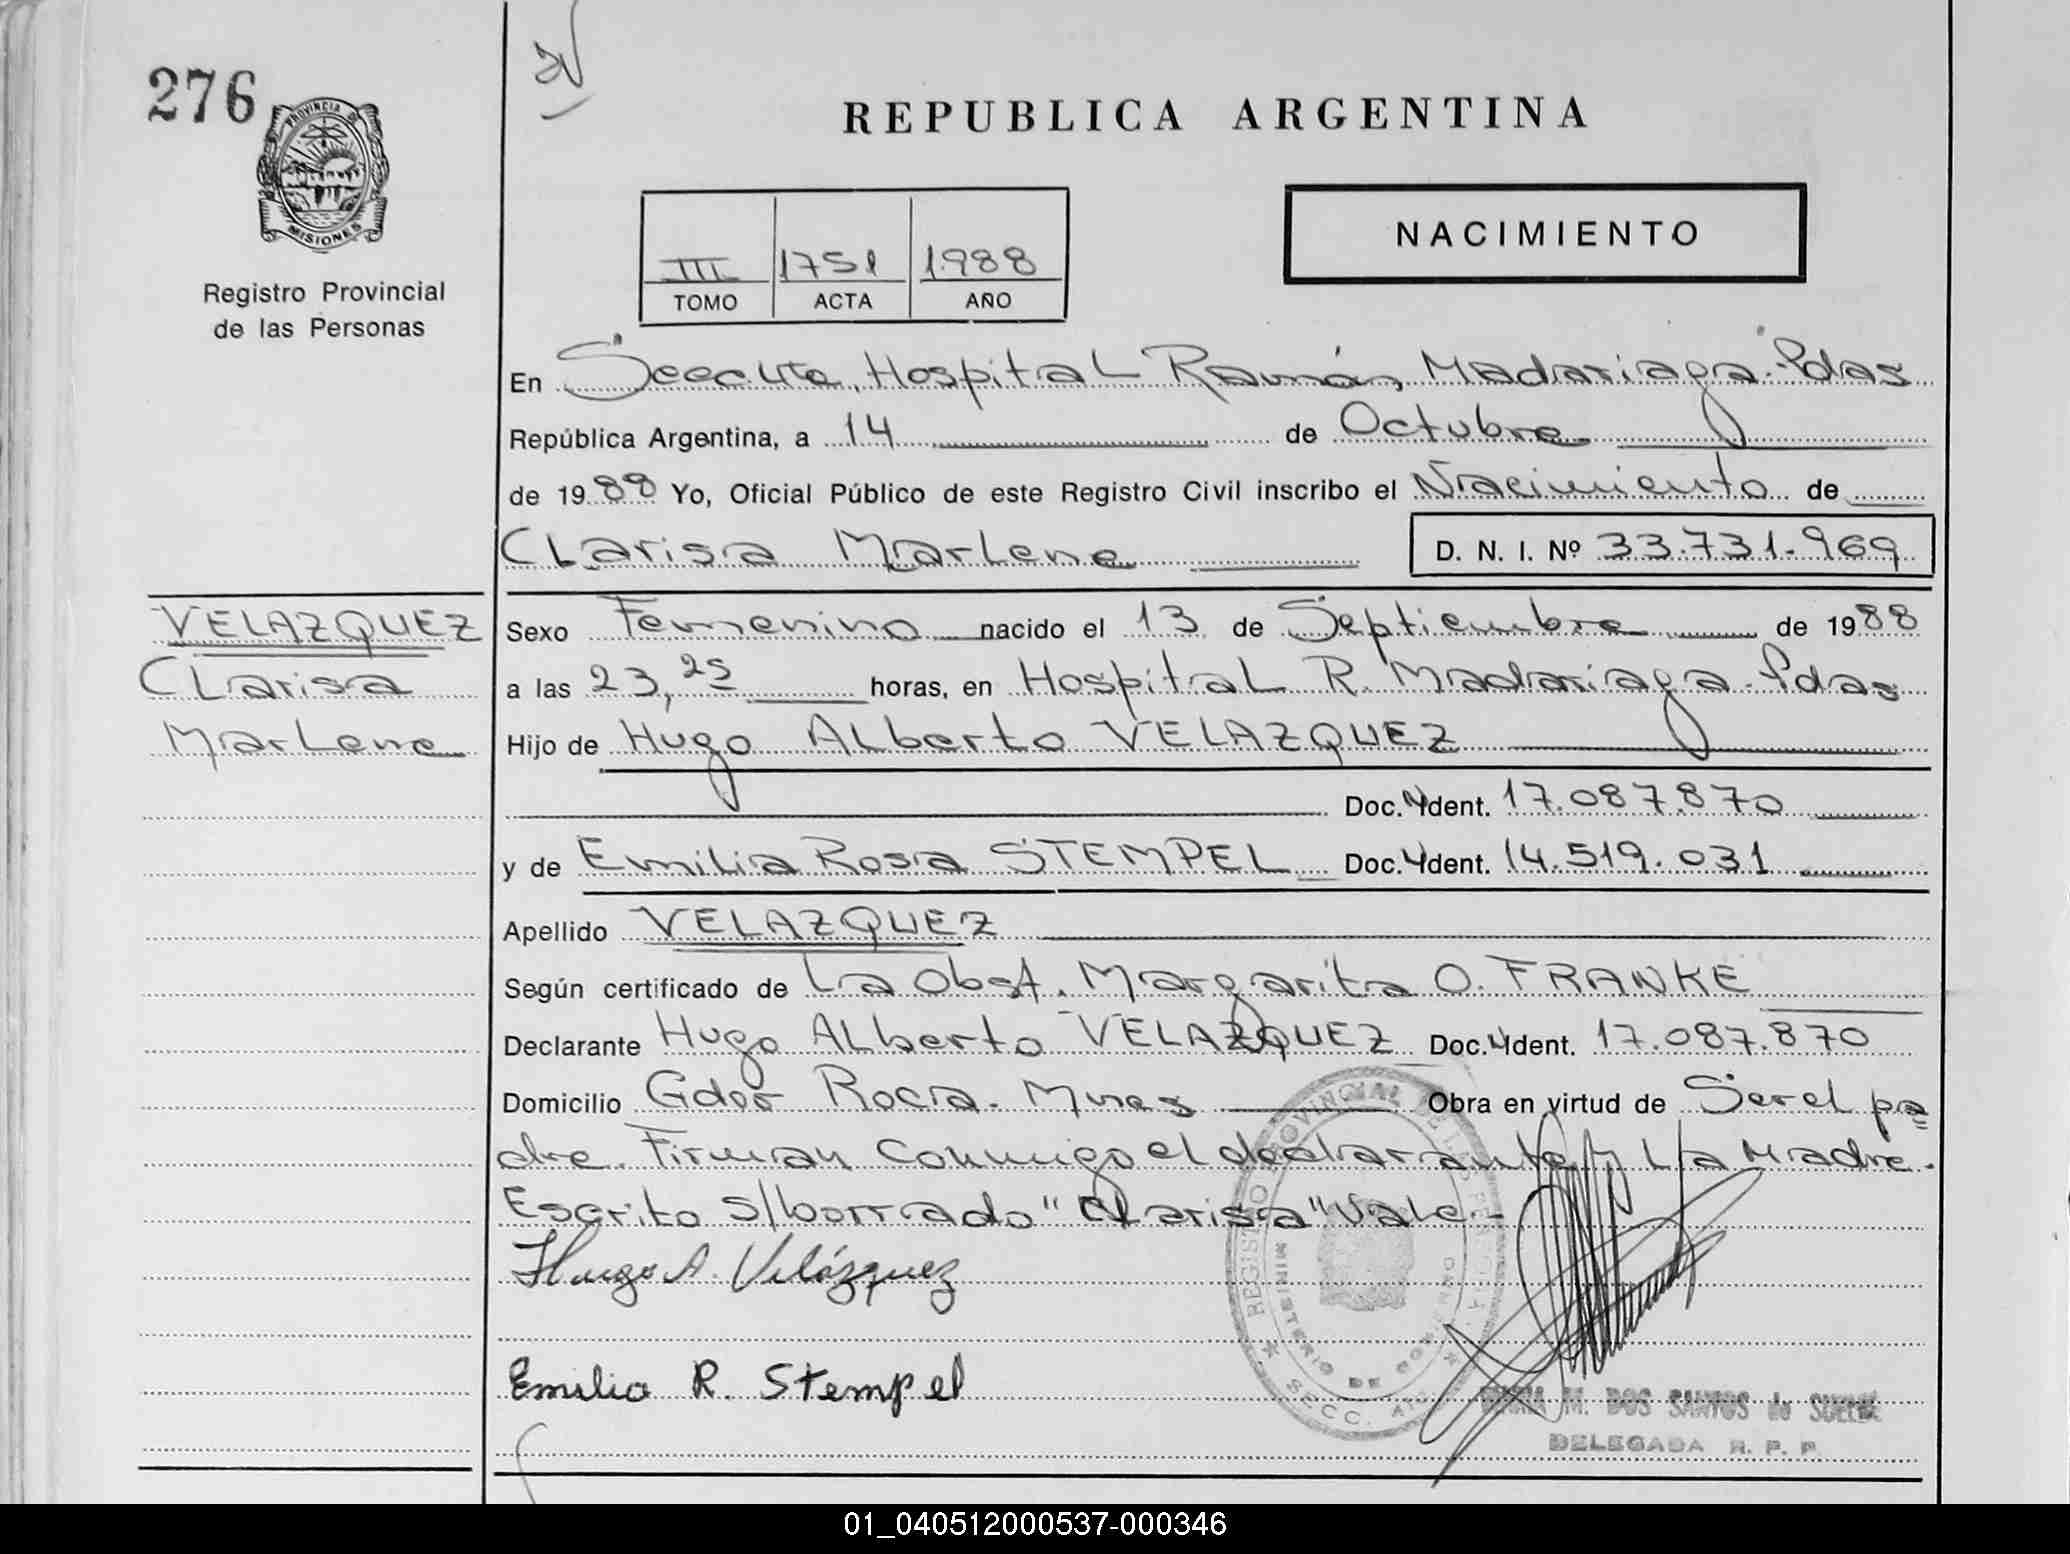 276
REPUBLICA ARGENTINA
PROVINCIA DE
MISIONES
Registro Provincial
de las Personas
III 1751 1988
TOMO ACTA AÑO
NACIMIENTO
En Hospital Ramón Madariaga-Pdas
República Argentina, a 14 de Octubre
de 1988 Yo, Oficial Público de este Registro Civil inscribo el Nacimiento de
CLarisa Marlene D. N. I. Nº 33.731.969
VELAZQUEZ
CLarisa
MarLene
Sexo Femenino nacido el 13 de Septiembre de 1988
a las 23,25 horas, en HospitaL R. Madariaga-Pdas
Hijo de Hugo ALberto VELAZQUEZ
Doc. Ident. 17.087.870
y de EmiLia Rosa STEMPEL Doc. Ident. 14.519.031
Apellido VELAZQUEZ
Según certificado de La Obst. Margarita O. FRANKE
Declarante Hugo ALberto VELAZQUEZ Doc. Ident. 17.087.870
Domicilio Gdor Roca. Mnes Obra en virtud de Ser el pa
dre. Firman Conmigo el declarante y La Madre.
Escrito s/borrado "CLarisa" Vale.-
Hugo A. Velázquez
Emilia R. Stempel
REGISTRO PROVINCIAL DE LAS PERSONAS
MINISTERIO DE GOBIERNO
SECC.
M. DOS SANTOS de
DELEGADA R. P. P.
01_040512000537-000346